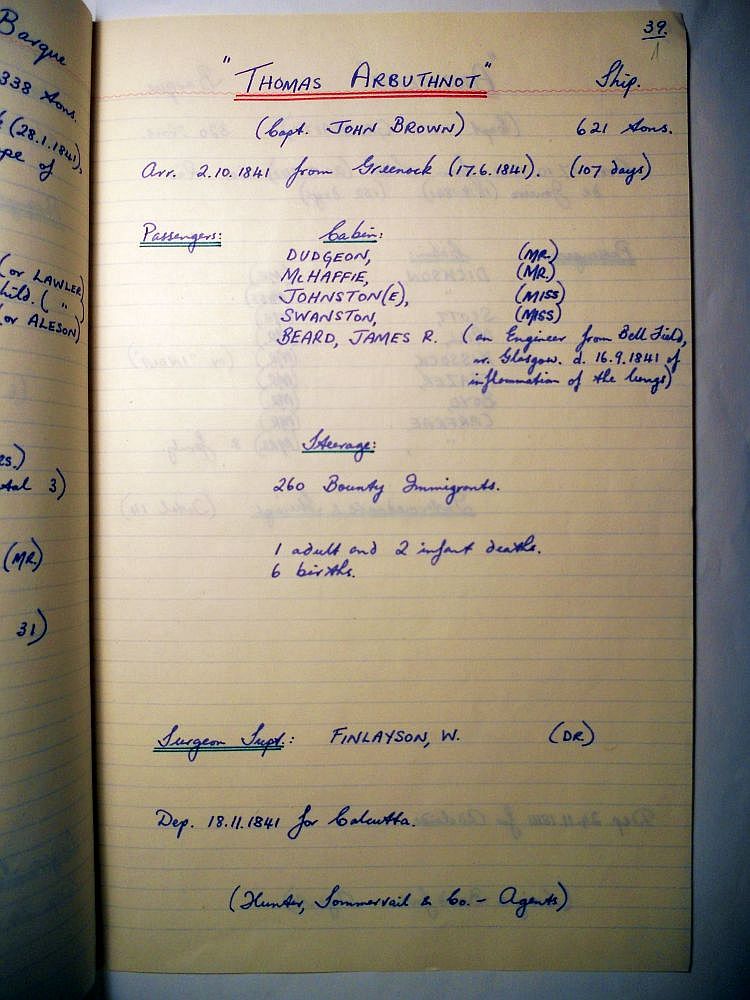 Barque
338 tons.
(28.1.1841),
pe of
(or LAWLER)
hild. ( " )
(or ALESON)
es.)
tal 3)
(MR)
31)
39.
"THOMAS ARBUTHNOT" Ship.
(Capt. JOHN BROWN) 621 tons.
Arr. 2.10.1841 from Greenock (17.6.1841). (107 days)
Passengers: Cabin:
DUDGEON, (MR.)
McHAFFIE, (MR.)
JOHNSTON(E), (MISS)
SWANSTON, (MISS)
BEARD, JAMES R. (an Engineer from Bell Field,
nr. Glasgow. d. 16.9.1841 of
inflammation of the lungs)
Steerage:
260 Bounty Immigrants.
1 adult and 2 infant deaths.
6 births.
Surgeon Supt.: FINLAYSON, W. (DR)
Dep. 18.11.1841 for Calcutta.
(Hunter, Sommervail & Co. - Agents)